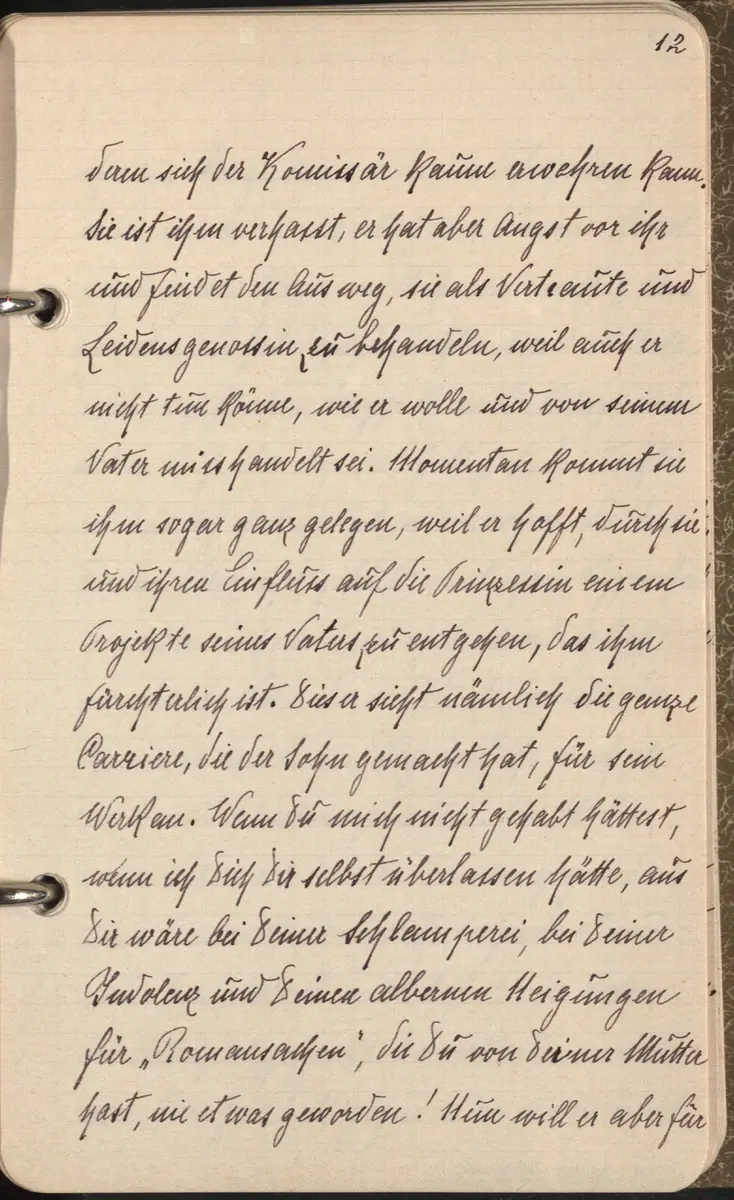 12
deren sich der Komissär kaum erwehren kann.
Sie ist ihm verhasst, er hat aber Angst vor ihr
und findet den Ausweg, sie als Vertraute und
Leidensgenossin zu behandeln, weil auch er
nicht tun könne, wie er wolle und von seinem
Vater misshandelt sei. Momentan kommt sie
ihm sogar ganz gelegen, weil er hofft, durch sie
und ihren Einfluss auf die Prinzessin einem
Projekte seines Vaters zu entgehen, das ihm
fürchterlich ist. Dieser sieht nämlich die ganze
Carriere, die der Sohn gemacht hat, für sein
Werk an. Wenn Du mich nicht gehabt hättest,
wenn ich Dich Dir selbst überlassen hätte, aus
Dir wäre bei Deiner Schlamperei, bei Deiner
Indolenz und Deinen albernen Neigungen
für „Romansachen", die Du von Deiner Mutter
hast, nie etwas geworden! Nun will er aber für